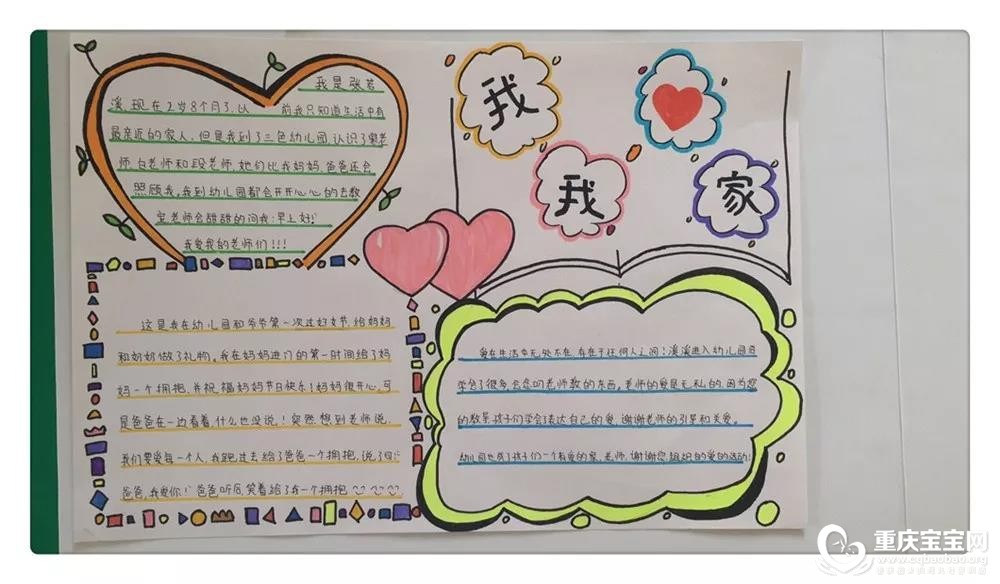 我是张若
溪,现在2岁8个月了,以前我只知道生活中有
最亲近的家人,但是我到了三色幼儿园,认识了老
师,白老师和段老师,她们比我妈妈,爸爸还会
照顾我,我到幼儿园都会开开心心的去教
室,老师会甜甜的问我:早上好!
我爱我的老师们!!!
我
我
家
这是我在幼儿园和爷爷第一次过妇女节,给妈妈
和奶奶做了礼物。我在妈妈进门的第一时间给了妈
妈一个拥抱,并祝福妈妈节日快乐!妈妈很开心,可
是爸爸在一边看着,什么也没说!突然想到老师说,
我们要爱每一个人,我跑过去给了爸爸一个拥抱,说了句:
爸爸,我爱你!爸爸听后,笑着给了我一个拥抱
爱在生活中无处不在,存在于任何人之间!溪溪进入幼儿园
学会了很多,会念叨老师教的东西。老师的爱是无私的,因为您
的教导孩子们学会了表达自己的爱,谢谢老师的引导和关爱。
幼儿园也成了孩子们一个有爱的家,老师,谢谢您,组织的爱的活动!
重庆宝宝网
www.cqbaobao.org